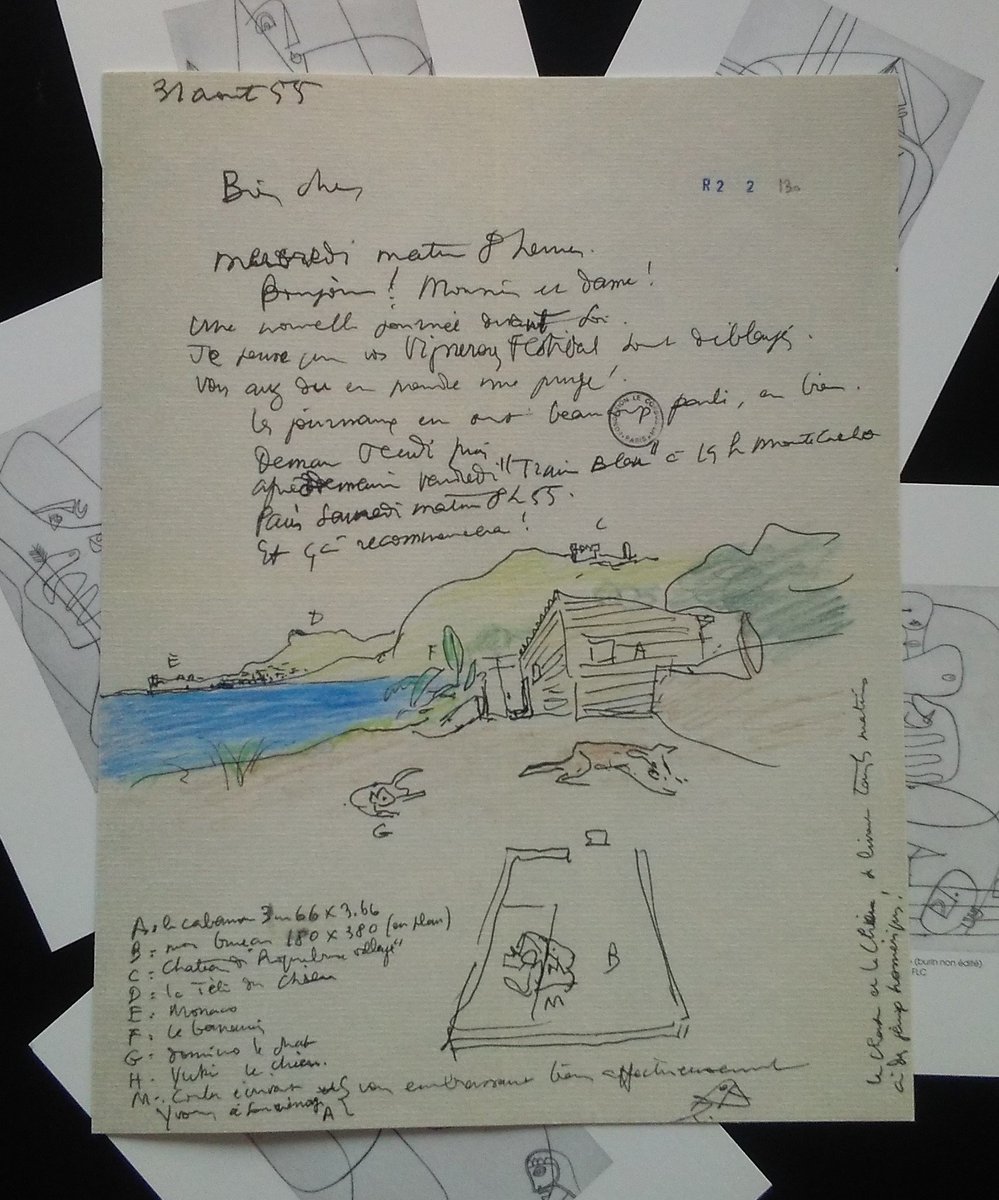 31 aout 55
R2 2 130
mercredi matin 8 heures.
Bonjour! Monsieur et dame!
Une nouvelle journée devant soi.
Je pense que vos Vignerons Festival sont déblayés.
Vous avez dû en prendre une purge!
les journaux en ont beaucoup parlé, en bien.
Demain jeudi
après demain vendredi "Train Bleu" à 15 h Monte Carlo
Paris Samedi matin 8 h 55.
Et ça recommencera!
C
D
E
F
A
G
B
M
A: le cabanon 3m66 x 3.66
B: mon bureau 180 x 380 (en plan)
C: Chateau de Roquebrune village"
D: la Tête de Chien
E: Monaco
F: le bananier
G: Domino le chat
H. Yuki le chien.
M. Corbu écrivant
Yvonne à son ménage A
vous embrassent bien affectueusement
le chat et le chien, à
à des
(burin non édité)
FLC